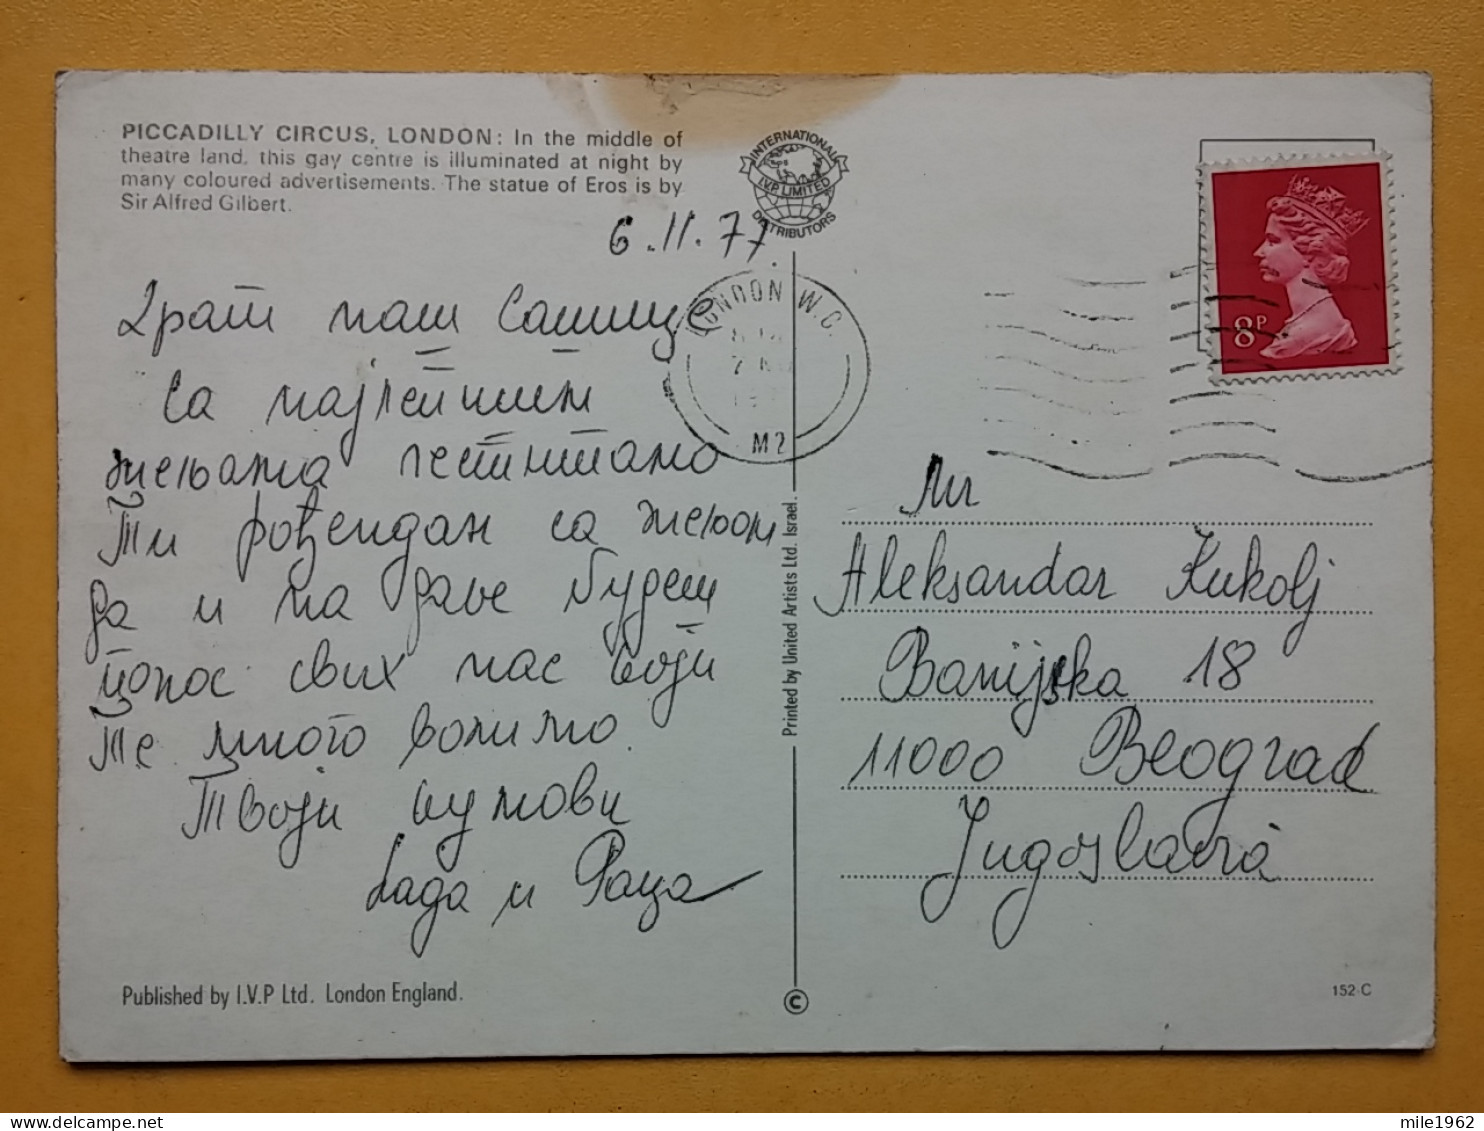 PICCADILLY CIRCUS, LONDON: In the middle of
theatre land, this gay centre is illuminated at night by
many coloured advertisements. The statue of Eros is by
Sir Alfred Gilbert.
INTERNATIONAL
I.V.P. LIMITED
DISTRIBUTORS
6.11.77.
Драги наш Сашице
Са најлепшим
жељама честитамо
Ти рођендан са жељом
да и на даље будеш
понос свих нас који
Те много волимо.
Твоји кумови
Лада и Раца
LONDON W.C.
M2
8P
Mr
Aleksandar Kukolj
Banijska 18
11000 Beograd
Jugoslavia
Printed by United Artists Ltd. Israel.
Published by I.V.P Ltd. London England.
©
152 C
mile1962